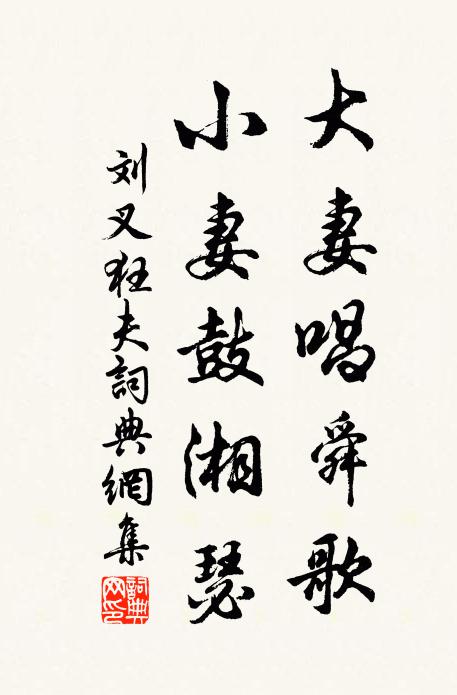 大妻唱舜歌
小妻鼓湘瑟
刘叉狂夫詞典網集
詞典网印